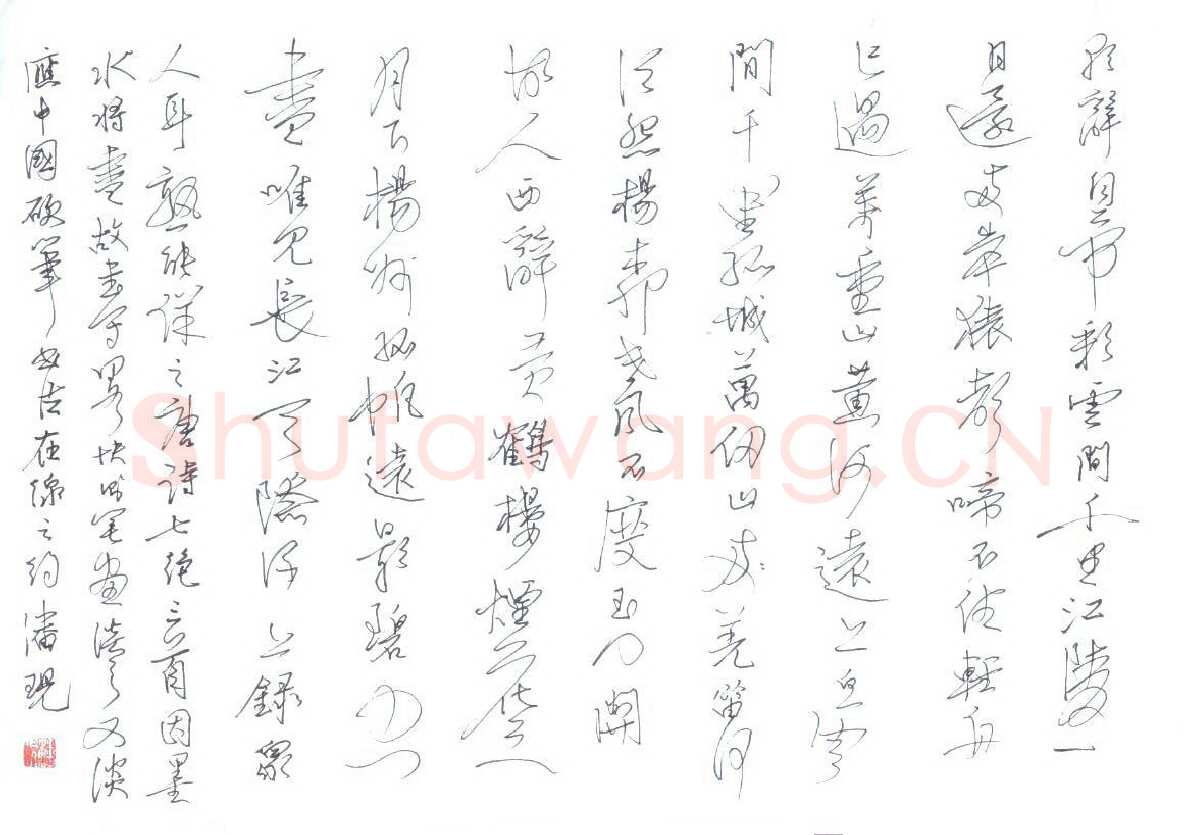 朝辭白帝彩雲間千里江陵一
日還两岸猿聲啼不住輕舟
已過萬重山黄河遠上白雲
間孤城萬仞山羌笛何
須怨楊柳春風不度玉门關
故人西辭黄鶴樓煙花三
月下楊州孤帆遠影碧空
盡唯見長江天際流上録眾
人耳熟能詳之唐詩七绝三首因墨
水将盡故書写畧快笔畫淡了又淡
應中國硬筆書法在線之約潘現
Shufawang.CN